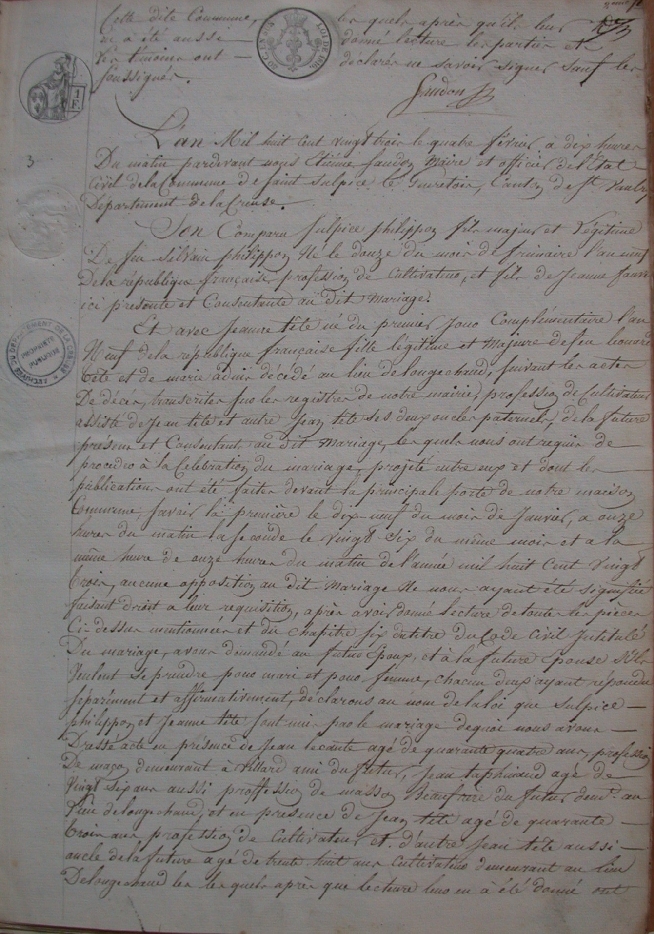 Cette dite Commune, les quels après qu'il leur
en a été aussi donné lecture les parties et
les témoins ont déclarés ne savoir signer sauf les
soussignés.
Jandon
1 F.
3
L'an Mil huit Cent vingt trois le quatre février à dix heures
Du matin pardevant nous Etienne Jandon Maire et officier de l'État
Civil de la Commune de Saint Sulpice le Guéretois, Canton de St Vaulry
Département de la Creuse.
Son Comparu Sulpice philippon fils majeur et Légitime
De feu Silvain philippon Né le douze du mois de frimaire l'an neuf
De la république française profession de Cultivateur, et fils de Jeanne
ici presente et Consentante au dit Mariage.
Et avec Jeanne tété né du premier Jour Complémentaire l'an
Neuf de la republique française fille légitime et Majeure de feu
tété et de marie décédé au lieu de Longechaud, suivant les actes
De décès, transcrites sur les registres de notre mairie, profession de Cultivateur
assisté de Jean tété et autre Jean tété ses deux oncles paternels, de la future
présens et Consentent au dit Mariage, les quels nous ont requis de
procédé à la Célébration du mariage, projeté entre eux et dont les
publications ont été faites devant la principale porte de notre maison
Commune, savoir la première le dix neuf du mois de Janvier, à onze
heures du matin la seconde le vingt six du même mois et a la
même heure de onze heures du matin de l'année mil huit Cent vingt
trois, aucune opposition au dit Mariage Ne nous ayant été signifiée
faisant droit a leur requisition, après avoir donné lecture de toute les pièces
Ci-dessus mentionnées et du chapitre six du titre du Code Civil Intitulé
Du mariage, avons demandé au futur Époux, et à la future épouse S'ils
Veulent se prendre pour mari et pour femme, chacun d'eux ayant répondu
Séparément et affirmativement, déclarons au nom de la loi que Sulpice
philippon et Jeanne tété sont unis par le mariage de quoi nous avons
Dressé acte en présence de Jean agé de quarante quatre ans, profession
De maçon demeurant à Villard ami du futur, Jean agé de
Vingt six ans aussi proffession de masson Beaufrere du futur demt au
lieu de Longechaud, et en presence de Jean tété agé de quarante
trois ans profession de Cultivateur et d'autre Jean tété aussi
oncle de la future agé de trente huit ans Cultivateur demeurant au lieu
De Longechaud les les quels après que lecture leur en a été donné ont